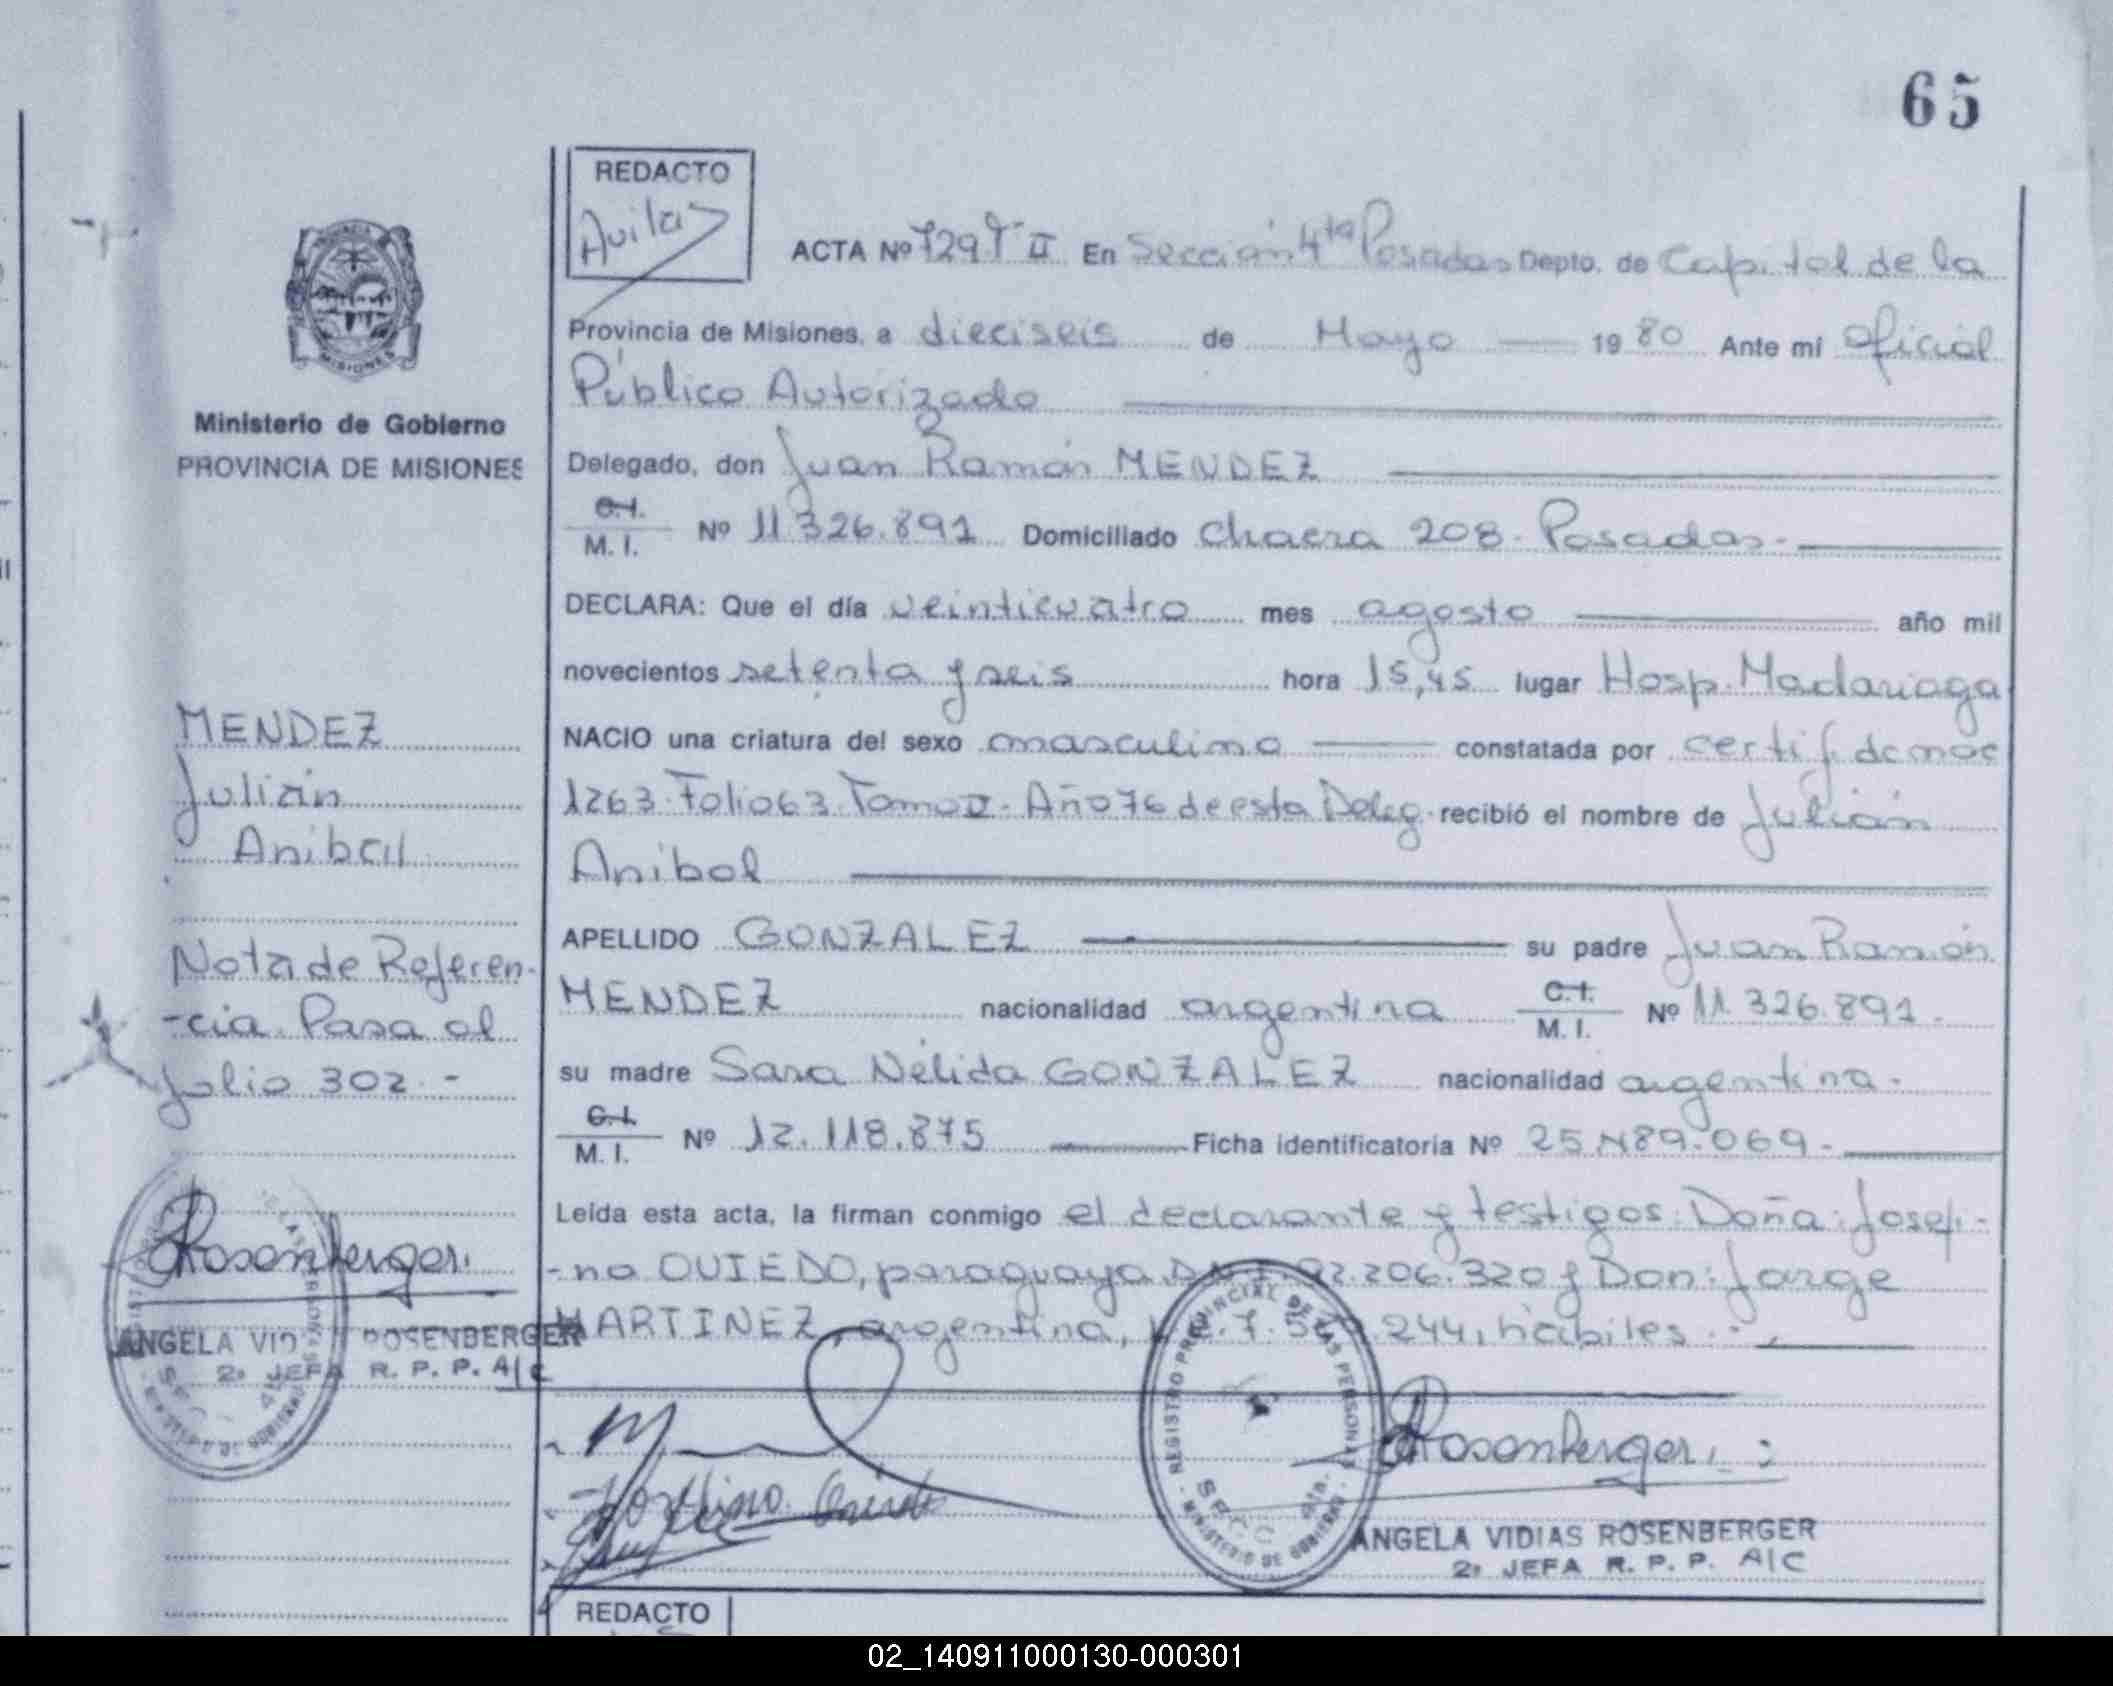 65
REDACTO
Avila
ACTA Nº 729 T II En Sección 4ta Posadas Depto. de Capital de la
Provincia de Misiones, a dieciseis de Mayo 1980 Ante mí Oficial
Público Autorizado
Delegado, don Juan Ramón MENDEZ
C.I.
M. I. Nº 11.326.891 Domiciliado Chacra 208 - Posadas -
DECLARA: Que el día veinticuatro mes agosto año mil
novecientos setenta y seis hora 15,45 lugar Hosp. Madariaga
NACIO una criatura del sexo masculino constatada por certif. de nac
1263. Folio 63. Tomo II - Año 76 de esta Deleg. recibió el nombre de Julián
Anibal
APELLIDO GONZALEZ su padre Juan Ramón
MENDEZ nacionalidad argentina C.I.
M. I. Nº 11.326.891.
su madre Sara Nélida GONZALEZ nacionalidad argentina -
C.I.
M. I. Nº 12.118.875 Ficha identificatoria Nº 25.189.069 -
Leída esta acta, la firman conmigo el declarante y testigos: Doña: Josefi-
-na OVIEDO, paraguaya 92.206.320 y Don: Jorge
MARTINEZ, argentina, 244, hábiles. -
Ministerio de Gobierno
PROVINCIA DE MISIONES
MISIONES
MENDEZ
Julián
Anibal
Nota de Referen-
-cia. Pasa al
folio 302. -
Rosenberger
ANGELA VIDIAS ROSENBERGER
2º JEFA R. P. P. A/C
REGISTRO PROVINCIAL DE LAS PERSONAS
SECC. 4ta.
- MINISTERIO DE GOBIERNO -
Rosenberger
ANGELA VIDIAS ROSENBERGER
2º JEFA R. P. P. A/C
REDACTO
02_140911000130-000301